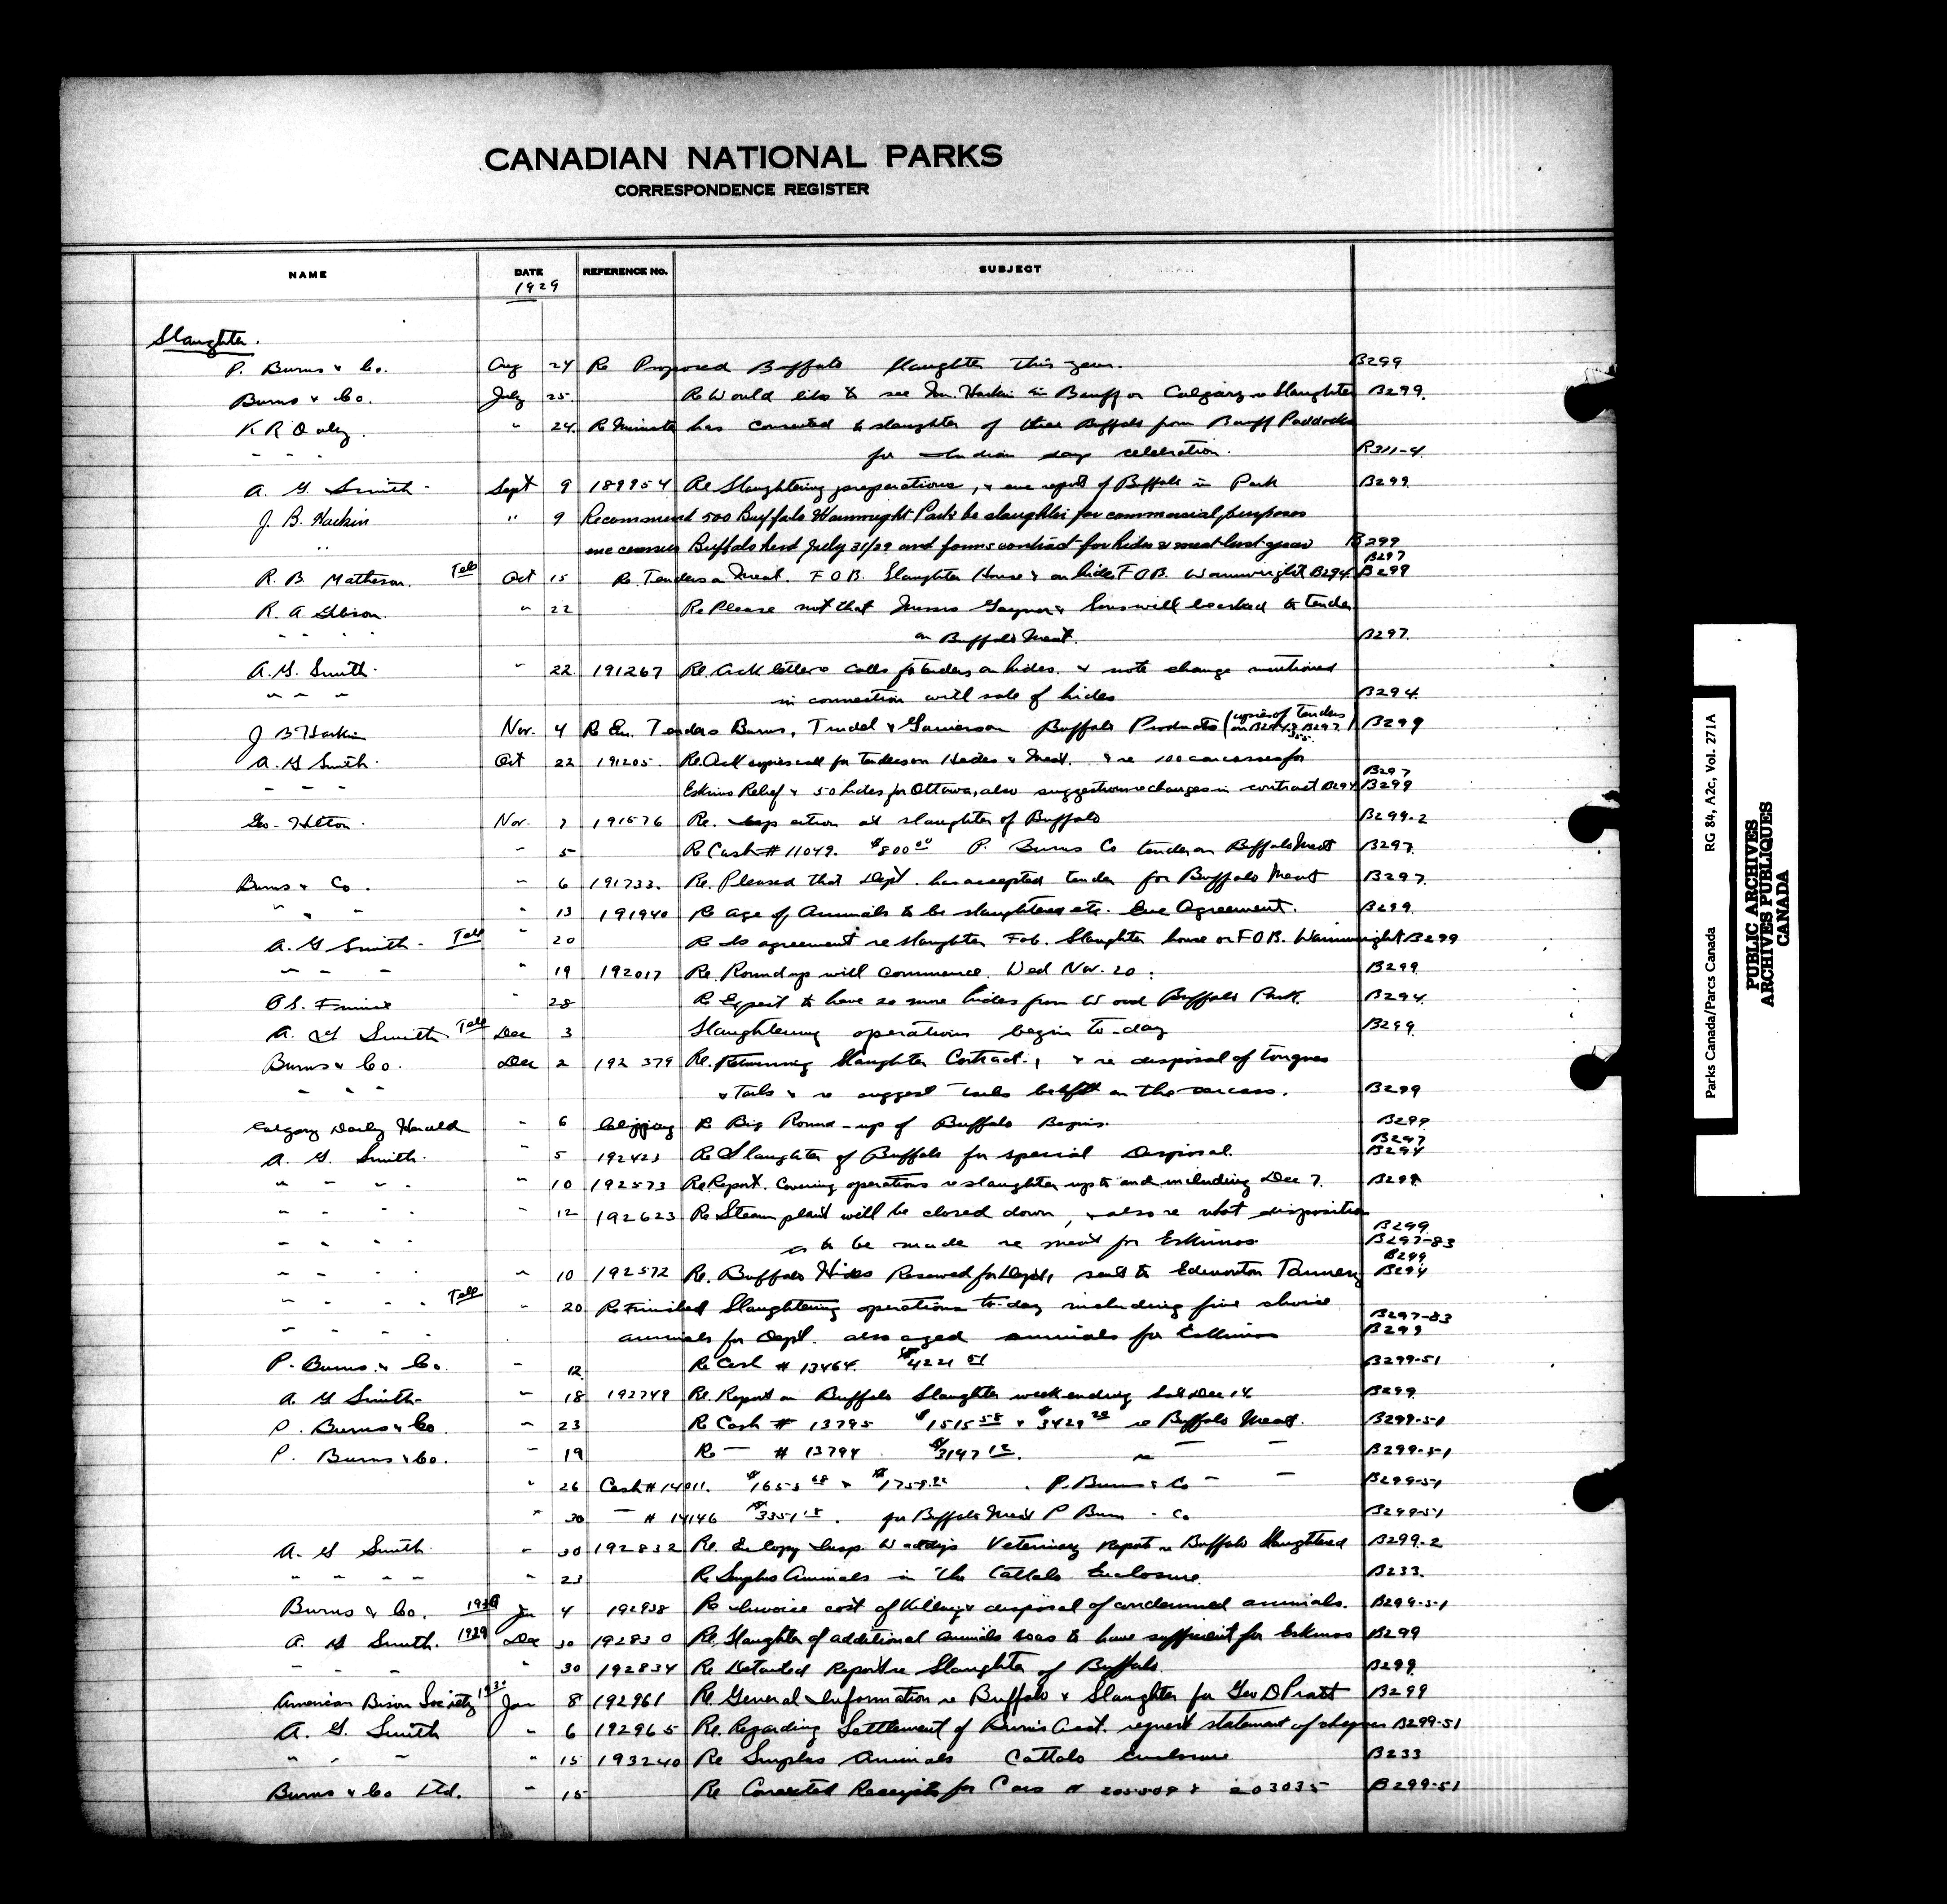 CANADIAN NATIONAL PARKS
CORRESPONDENCE REGISTER
NAME DATE REFERENCE NO. SUBJECT
1929
Slaughter.
P. Burns & Co. Aug 24 Re Proposed Buffalo Slaughter This year. B299
Burns & Co. July 25 Re Would like to see Mr. Harkin in Banff or Calgary re Slaughter B299
" 24 Re Minister has consented to slaughter of three Buffalo from Banff Paddocks
" " " for Indian days celebration. R311-4
A. G. Smith Sept 9 189954 Re Slaughtering preparations, & enc report of Buffalo in Park B299
J. B. Harkin " 9 Recommend 500 Buffalo Wainwright Park be slaughter for commercial purposes
" enc census Buffalo herd July 31/29 and forms contract for hides & meat last year B299
R. B. Matheson. Tele Oct 15 Re. Tenders on Meat. F O B. Slaughter House & on hides F O B. Wainwright B294 B297 B299
R. A. Gibson. " 22 Re Please note that Messrs Gaynor & Sons will be asked to tender
" " " " on Buffalo Meat. B297
A. G. Smith. " 22. 191267 Re. Ack letter & calls for tenders on hides. & note change mentioned
" " " in connection with sale of hides B294
J B Harkin Nov. 4 Re En. Tenders Burns, Trudel & Buffalo Products (copies of tenders on B294 & B297) B299
A. G Smith Oct 22 191205. Re. Ack copies call for tenders on Hides & Meat. & re 100 carcasses for
" " " Eskimo Relief & 50 hides for Ottawa, also suggestions re changes in contract B294 B297 B299
Geo. Hilton. Nov. 7 191576 Re. Inspection at slaughter of Buffalo B299-2
" 5 Re Cash # 11049. $800 00 P. Burns Co tender on Buffalo Meat B297
Burns & Co. " 6 191733. Re. Pleased that Dept. has accepted tender for Buffalo Meat B297
" " " " 13 191940 Re age of Animals to be slaughtered etc. Enc Agreement. B299
A. G Smith - Tele " 20 Re Is agreement re slaughter Fob. Slaughter house or F O B. Wainwright B299
" " " " 19 192017 Re. Roundup will commence. Wed Nov. 20. B299
O S. Finnie " 28 Re Expect to have 20 more hides from Wood Buffalo Park. B294
A. G Smith. Tele Dec 3 Slaughtering operations begin to-day B299
Burns & Co. Dec 2 192379 Re. Returning Slaughter Contract., & re disposal of tongues
" " " & Tails & re suggest tails be left on the carcass. B299
Calgary Daily Herald " 6 Clipping Re Big Round-up of Buffalo Begins. B299
A. G. Smith. " 5 192423 Re Slaughter of Buffalo for special Disposal. B297 B294
" " " " " 10 192573 Re Report. Covering operations re slaughter up to and including Dec 7. B299
" " " " " 12 192623 Re Steam plant will be closed down, & also re what disposition
" " " " is to be made re meat for Eskimos B299 B297-83
" " " " " 10 192572 Re. Buffalo Hides Reserved for Dept, sent to Edmonton Tannery B299 B294
" " " " Tele " 20 Re Finished Slaughtering operations to-day including five choice
" " " " animals for Dept. also aged animals for Eskimos B297-83 B299
P. Burns. & Co. " 12 Re Cash # 13464. $4221 51 B299-51
A. G Smith " 18 192749 Re. Report on Buffalo Slaughter week ending Sat Dec 14 B299
P. Burns & Co " 23 Re Cash # 13795 $1515 58 & $3429 20 re Buffalo Meat. B299-51
P. Burns & Co. " 19 Re - # 13794 $3147 12. " - - B299-51
" 26 Cash # 14011. $1653 68 & $1759.22 . P. Burns & Co - - B299-51
" 30 - # 14146 $3351 18. for Buffalo Meat P Burns - Co B299-51
A. G Smith " 30 192832 Re. En Copy Insp. Veterinary Report re Buffalo Slaughtered B299-2
" " " " " 23 Re Surplus Animals in The Cattalo Enclosure. B233.
Burns & Co. 1930 Jan 4 192938 Re Invoice cost of Killing & disposal of condemned animals. B299-51
A. G Smith. 1929 Dec 30 192830 Re Slaughter of additional animals so as to have sufficient for Eskimos B299
" " " " 30 192834 Re Detailed Report re Slaughter of Buffalo. B299
American Bison Society 1930 Jan 8 192961 Re. General Information re Buffalo & Slaughter for Geo D Pratt B299
A. G. Smith " 6 192965 Re. Regarding Settlement of Burns Acct. request statement of cheques B299-51
" " " " 15 193240 Re Surplus Animals Cattalo Enclosure B233
Burns & Co Ltd. " 15 Re Corrected Receipts for Cars # & 203035 B299-51
Parks Canada/Parcs Canada RG 84, A2c, Vol. 271A
PUBLIC ARCHIVES
ARCHIVES PUBLIQUES
CANADA